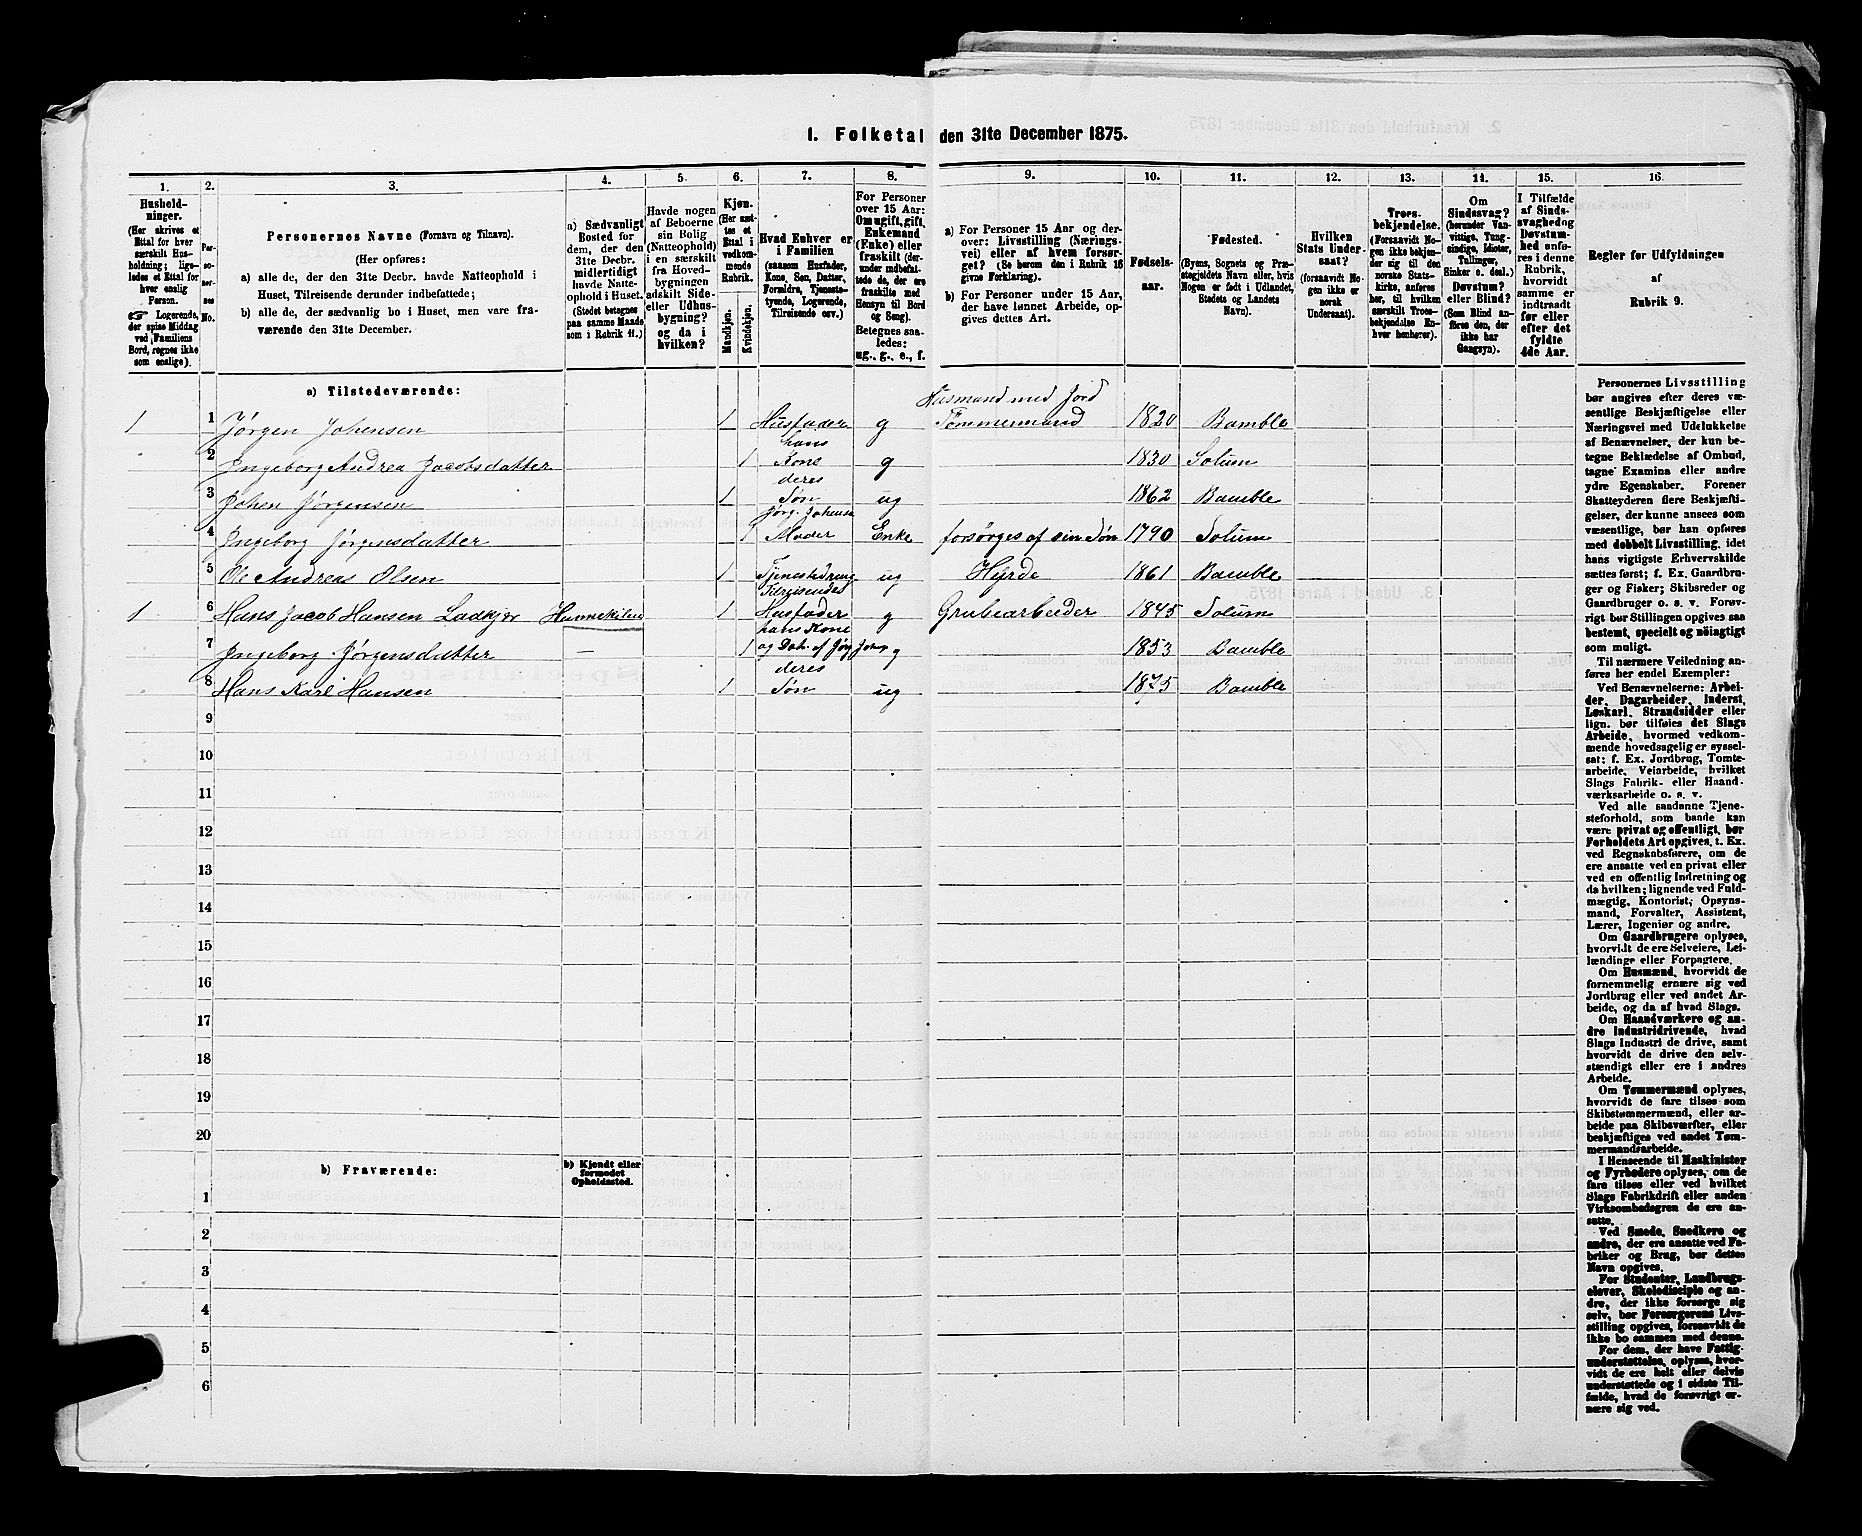 1. Folketal den 31te December 1875.
1.
2.
3.
4.
5.
6.
7.
8.
9.
10.
11.
12.
13.
14.
15.
16.
Hushold-
ninger.
(Her skrives et
Ettal for hver
særskilt Hus-
holdning; lige-
ledes et Ettal for
hver enslig
Person.
☞ Logerende,
der spise Middag
ved Familiens
Bord, regnes ikke
som enslige).
Per-
so-
ner-
nes
No.
Personernes Navne (Fornavn og Tilnavn).
(Her opføres:
a) alle de, der den 31te Decbr. havde Natteophold i
Huset, Tilreisende derunder indbefattede;
b) alle de, der sædvanlig bo i Huset, men vare fra-
værende den 31te December.
a) Sædvanligt
Bosted for
dem, der den
31te Decbr.
midlertidigt
havde Natte-
ophold i Huset.
(Stedet betegnes
paa samme Maade
som i Rubrik 11.)
Havde nogen
af Beboerne
sin Bolig
(Natteophold)
i en særskilt
fra Hoved-
bygningen
adskilt Side-
eller Udhus-
bygning?
og da i
hvilken?
Kjøn.
(Her sæt-
tes et
Ettal i
vedkom-
mende
Rubrik.
Mandkjøn.
Kvindekjøn.
Hvad Enhver er
i Familien
(saasom Husfader,
Kone, Søn, Datter,
Forældre, Tjeneste-
tyende, Logerende,
Tilreisende osv.)
For Personer
over 15 Aar:
Om ugift, gift,
Enkemand
(Enke) eller
fraskilt (der-
under indbefat-
tede de, der ere
fraskilte med
Hensyn til Bord
og Seng).
Betegnes saa-
ledes:
ug., g., e., f.
a) For Personer 15 Aar og der-
over: Livsstilling (Nærings-
vei) eller af hvem forsør-
get? (Se herom den i Rubrik 16
givne Forklaring).
b) For Personer under 15 Aar,
der have lønnet Arbeide, op-
gives dettes Art.
Fødsels-
aar.
Fødested.
(Byens, Sognets og Præ-
stegjeldets Navn eller, hvis
Nogen er født i Udlandet,
Stedets og Landets
Navn).
Hvilken
Stats Under-
saat?
(forsaavidt No-
gen ikke er
norsk
Undersaat).
Troes-
bekjendelse.
(Forsaavidt No-
gen ikke bekjen-
der sig til den
norske Stats-
kirke, anføres
her, til hvilken
særskilt Troes-
bekjendelse En-
hver henhører).
Om
Sindssvag?
(herunder Van-
vittige, Tung-
sindige, Idioter,
Tullinger,
Sinker o. desl.)
Døvstum?
eller Blind?
(Som Blind an-
føres den, der
ikke har
Gangsyn).
I Tilfælde
af Sinds-
svaghed og
Døvstum-
hed anfø-
res i denne
Rubrik,
hvorvidt
samme er
indtraadt
før eller
efter det
fyldte
4de Aar.
Regler for Udfyldningen
af
Rubrik 9.
a) Tilstedeværende:
Husmand med Jord
1 1 Jørgen Johensen 1 Husfader g Tømmermand 1820 Bamble
hans
2 Ingeborg Andrea Jacobsdatter 1 Kone g 1830 Solum
deres
3 Johen Jørgensen 1 Søn ug 1862 Bamble
Jørg. Johensen
4 Ingeborg Jørgensdatter 1 Moder Enke forsørges af sin Søn 1790 Solum
5 Ole Andreas Olsen 1 Tjenestedreng ug Hyrde 1861 Bamble
Tilreisendes
1 6 Hans Jacob Hansen Ladkjær 1 Husfader g Grubearbeider 1845 Solum
hans Kone
7 Ingeborg Jørgensdatter — 1 og Dat. af Jørg. Johns g 1853 Bamble
deres
8 Hans Karl Hansen 1 Søn ug 1875 Bamble
9
10
11
12
13
14
15
16
17
18
19
20
b) Fraværende:
b) Kjendt eller
formodet
Opholdssted.
1
2
3
4
5
6
Personernes Livsstilling
bør angives efter deres væ-
sentlige Beskjæftigelse eller
Næringsvei med Udelukkelse
af Benævnelser, der kun be-
tegne Beklædelse af Ombud,
tagne Examina eller andre
ydre Egenskaber. Forener
Skatteyderen flere Beskjæfti-
gelser, der kunne ansees som
væsentlige, bør han opføres
med dobbelt Livsstilling, idet
hans vigtigste Erhvervskilde
sættes først; f. Ex. Gaardbru-
ger og Fisker; Skibsreder og
Gaardbruger o. s. v. Forøv-
rigt bør Stillingen opgives saa
bestemt, specielt og nøiagtigt
som muligt.
Til nærmere Veiledning an-
føres her endel Exempler:
Ved Benævnelserne: Arbei-
der, Dagarbeider, Inderst,
Løskarl, Strandsidder eller
lign. bør tilføies det Slags
Arbeide, hvormed vedkom-
mende hovedsagelig er syssel-
sat; f. Ex. Jordbrug, Tomte-
arbeide, Veiarbeide, hvilket
Slags Fabrik- eller Haand-
værksarbeide o. s. v.
Ved alle saadanne Tjene-
steforhold, som baade kan
være privat og offentligt, bør
Forholdets Art opgives, t. Ex.
ved Regnskabsførere, om de
ere ansatte ved en privat eller
ved en offentlig Indretning og
da hvilken; lignende ved Fuld-
mægtig, Kontorist, Opsyns-
mand, Forvalter, Assistent,
Lærer, Ingeniør og andre.
Om Gaardbrugere oplyses,
hvorvidt de ere Selveiere, Lei-
lændinge eller Forpagtere.
Om Husmænd, hvorvidt de
fornemmelig ernære sig ved
Jordbrug eller ved andet Ar-
beide, og da af hvad Slags.
Om Haandværkere og an-
dre Industridrivende, hvad
Slags Industri de drive, samt
hvorvidt de drive den selv-
stændigt eller ere i andres
Arbeide.
Om Tømmermænd oplyses,
hvorvidt de fare tilsøs som
Skibstømmermænd, eller ar-
beide paa Skibsværfter, eller
beskjæftiges ved andet Tøm-
mermandsarbeide.
I Henseende til Maskinister
og Fyrbødere oplyses, om de
fare tilsøs eller ved hvilket
Slags Fabrikdrift eller anden
Virksomhedsgren de ere an-
satte.
Ved Smede, Snedkere og
andre, der ere ansatte ved Fa-
briker og Brug, bør dettes
Navn opgives.
For Studenter, Landbrugs-
elever, Skoledisciple og an-
dre, der ikke forsørge sig
selv, bør Forsørgerens Livs-
stilling opgives, forsaavidt de
ikke bo sammen med denne.
For dem, der have Fattig-
understøttelse, oplyses, hvor-
vidt de ere helt eller delvis
understøttede og i sidste Til-
fælde, hvad de forøvrigt er-
nære sig ved.